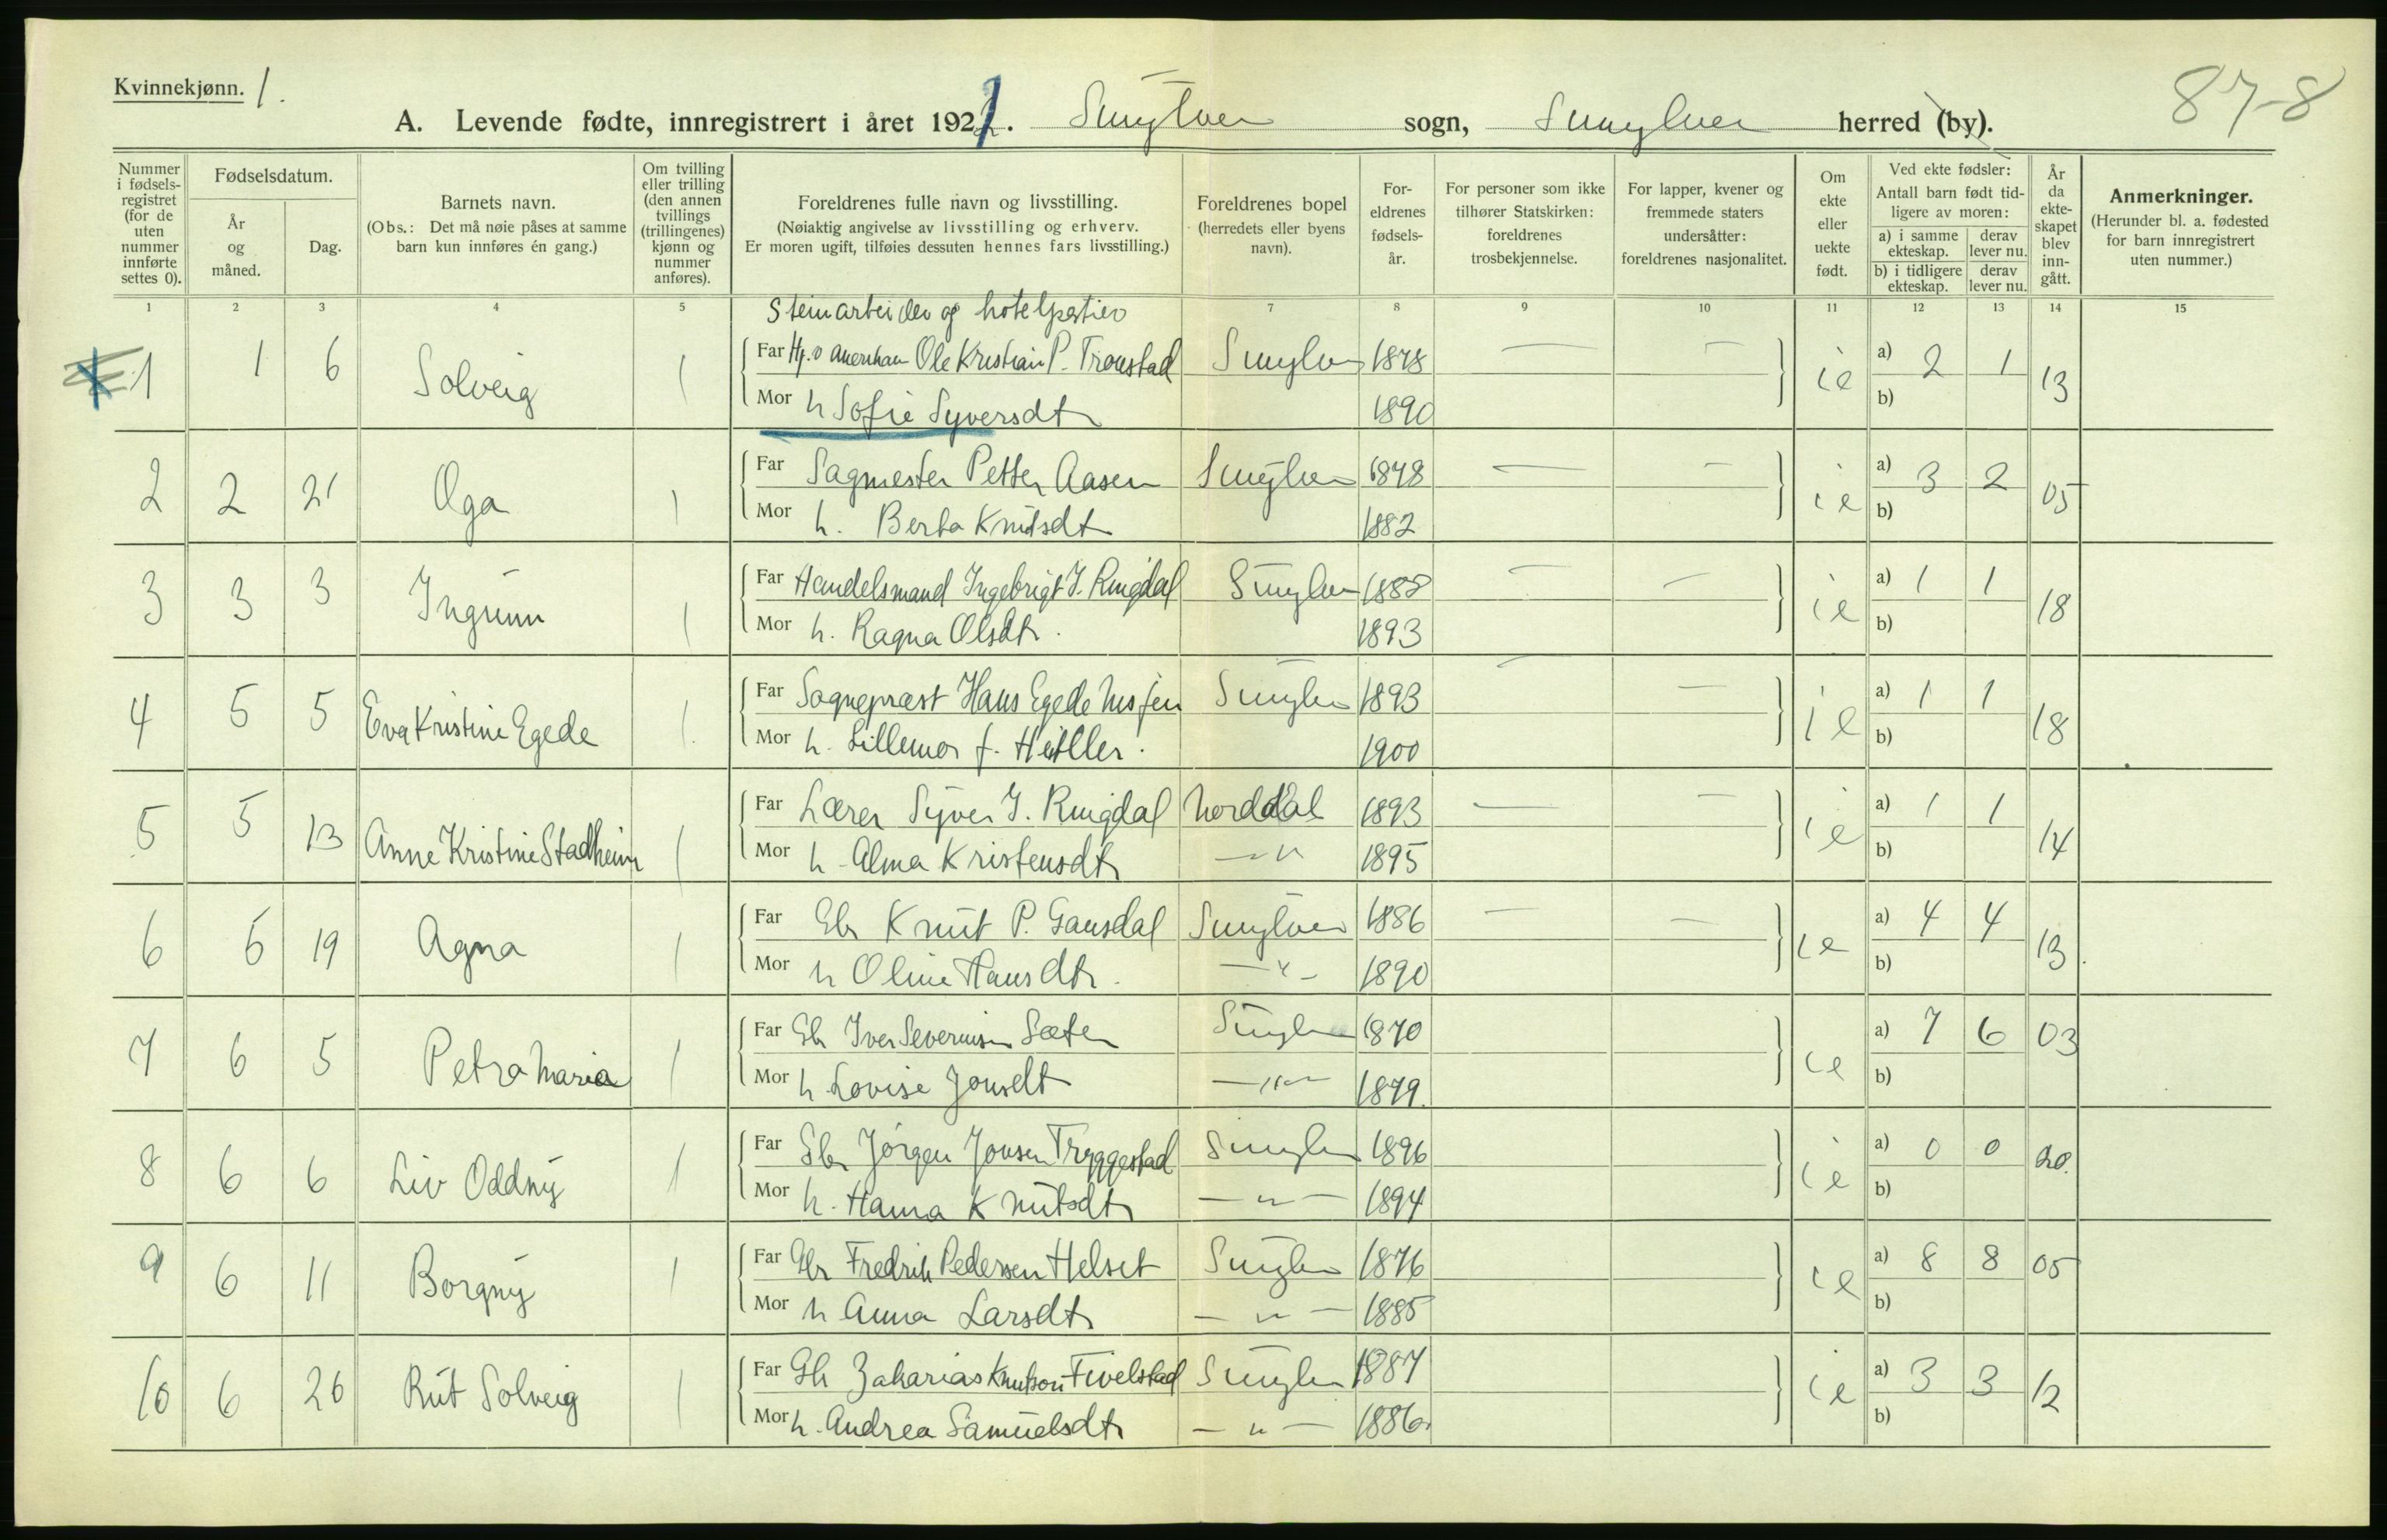 Kvinnekjønn. 1.
87-8
A. Levende fødte, innregistrert i året 1921. Sunylven sogn, Sunylven herred (by).
Nummer i fødsels-registret (for de uten nummer innførte settes 0).
Fødselsdatum.
År og måned.
Dag.
Barnets navn.
(Obs.: Det må nøie påses at samme barn kun innføres én gang.)
Om tvilling eller trilling (den annen tvillings (trillingenes) kjønn og nummer anføres).
Foreldrenes fulle navn og livsstilling.
(Nøiaktig angivelse av livsstilling og erhverv.
Er moren ugift, tilføies dessuten hennes fars livsstilling.)
Foreldrenes bopel (herredets eller byens navn).
For-eldrenes fødsels-år.
For personer som ikke tilhører Statskirken: foreldrenes trosbekjennelse.
For lapper, kvener og fremmede staters undersåtter: foreldrenes nasjonalitet.
Om ekte eller uekte født.
Ved ekte fødsler:
Antall barn født tid-ligere av moren:
a) i samme ekteskap. derav lever nu.
b) i tidligere ekteskap. derav lever nu.
År da ekte-skapet blev inn-gått.
Anmerkninger.
(Herunder bl. a. fødested for barn innregistrert uten nummer.)
1 2 3 4 5 7 8 9 10 11 12 13 14 15
Steinarbeider og hotelportier
1 1 6 Solveig 1 Far Ole Kristian P. Tronstad Sunylven 1878 — — ie a) 2 1 13
Mor h Sofie Syversdt 1890 b)
2 2 21 Oga 1 Far Sagmester Petter Aasen Sunylven 1878 — — ie a) 3 2 05
Mor h. Berta Knutsdt 1882 b)
3 3 3 Ingunn 1 Far Handelsmand Ingebrigt J. Ringdal Sunylven 1888 — — ie a) 1 1 18
Mor h. Ragna Olsdt. 1893 b)
4 5 5 Eva Kristine Egede 1. Far Sogneprest Hans Egede Nissen Sunylven 1893 — — ie a) 1 1 18
Mor h. Lillemor f. 1900 b)
5 5 13 Anne Kristine Stadheim 1 Far Lærer Syver J. Ringdal Norddal 1893 — — ie a) 1 1 14
Mor h. Alma Kristensdt — " 1895 b)
6 5 19 Agna 1 Far Gbr Knut P. Gausdal Sunylven 1886 — — ie a) 4 4 13
Mor h Oline Hansdt. — " – 1890 b)
7 6 5 Petra Maria 1 Far Gbr Iver Severinsen Sæter Sunylven 1870 ie a) 7 6 03
Mor h Lovise Jonsdt — " — 1879. b)
8 6 6 Liv Oddny 1 Far Gbr Jørgen Jonsen Tryggestad Sunylven 1896 ie a) 0 0 20.
Mor h. Hanna Knutsdt — " — 1894 b)
9 6 11 Borgny 1 Far Gbr Fredrik Pedersen Helset Sunylven 1876 ie a) 8 8 05
Mor h Anna Larsdt — " — 1885 b)
10 6 26 Rut Solveig 1 Far Gbr Zakarias Knutson Fivelstad Sunylven 1887 ie a) 3 3 12
Mor h. Andrea Samuelsdt — " — 1886. b)